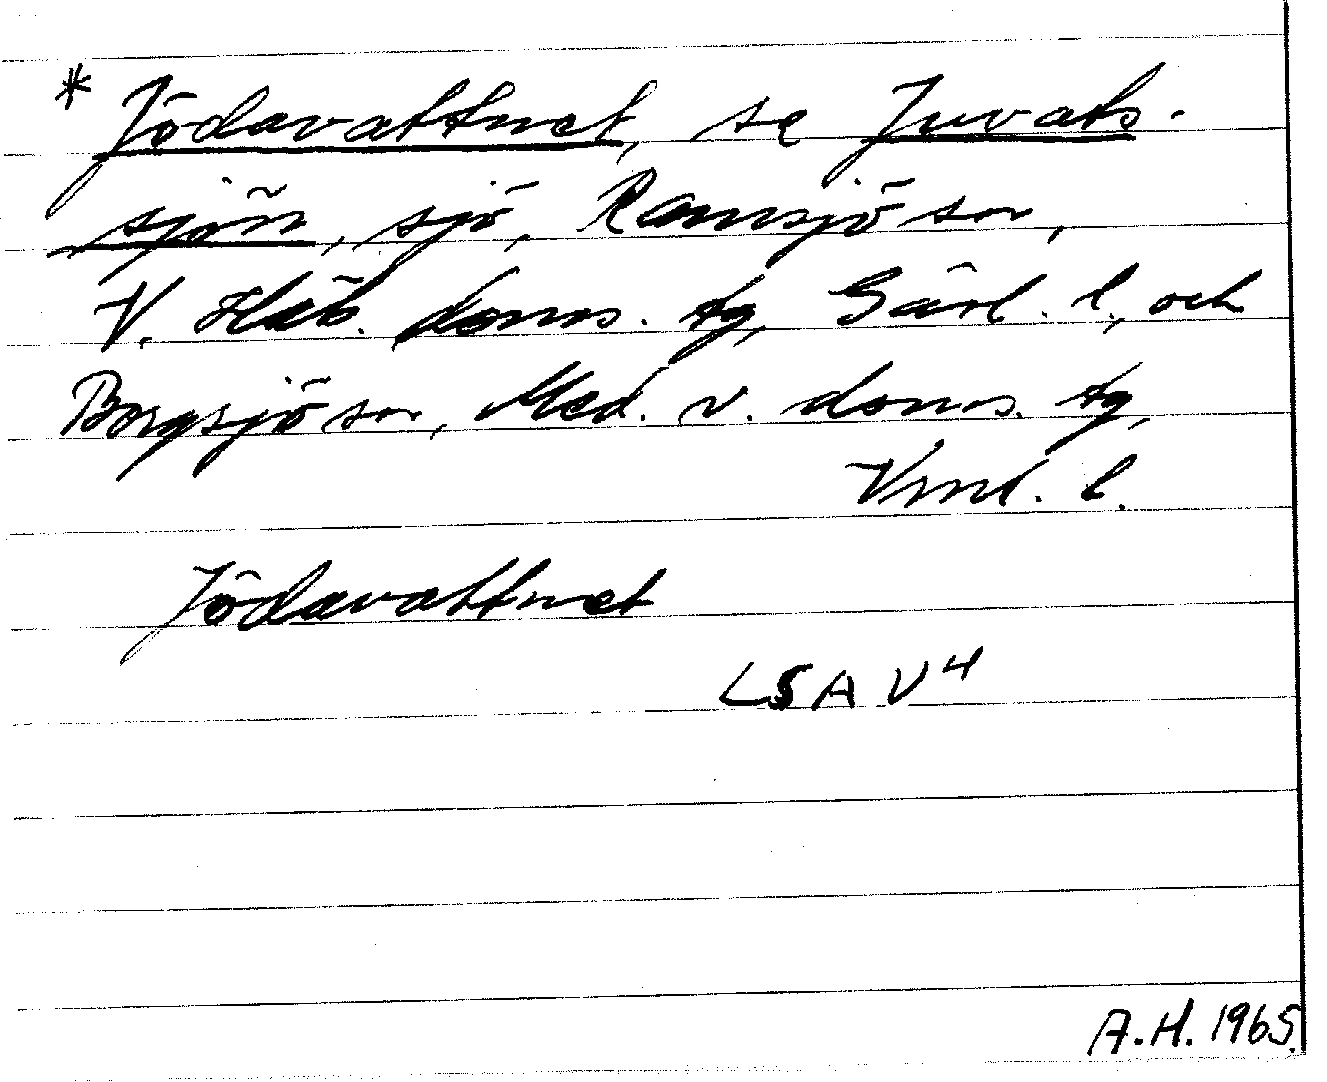 * Jödavattnet, se Juvats-
sjön, sjö, Ramsjö sn,
V. Häls. doms. tg, Gävl. l., och
Borgsjö sn, Med. v. doms. tg,
Vrnl. l.
Jödavattnet
LSA V4
A.H. 1965.